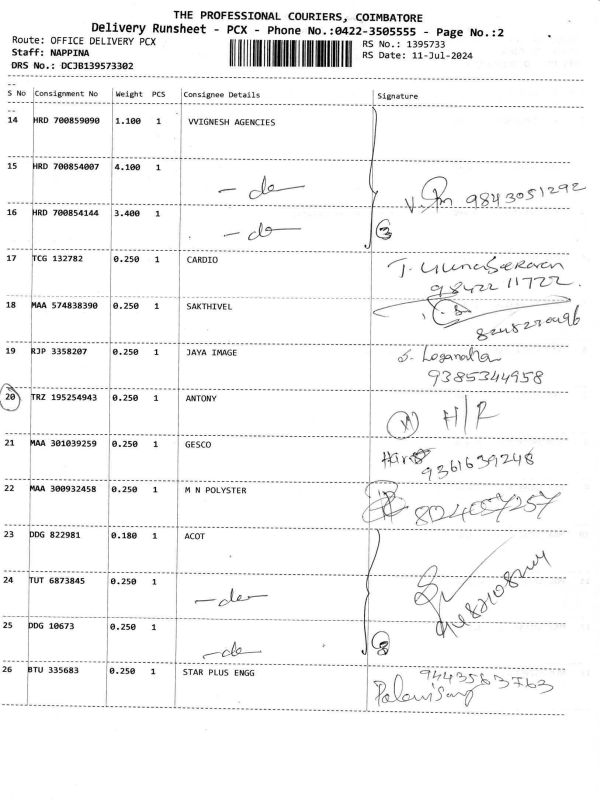 THE PROFESSIONAL COURIERS, COIMBATORE
Delivery Runsheet - PCX - Phone No.:0422-3505555 - Page No.:2
Route: OFFICE DELIVERY PCX
RS No.: 1395733
Staff: NAPPINA
RS Date: 11-Jul-2024
DRS No.: DCJB139573302
S No Consignment No Weight PCS Consignee Details Signature
14 HRD 700859090 1.100 1 VVIGNESH AGENCIES
15 HRD 700854007 4.100 1 - do 9843051292
16 HRD 700854144 3.400 1 - do 3
17 TCG 132782 0.250 1 CARDIO
98422 11722.
18 MAA 574838390 0.250 1 SAKTHIVEL
19 RJP 3358207 0.250 1 JAYA IMAGE
9385344958
20 TRZ 195254943 0.250 1 ANTONY H/R
21 MAA 301039259 0.250 1 GESCO
9361639248
22 MAA 300932458 0.250 1 M N POLYSTER
23 DDG 822981 0.180 1 ACOT
24 TUT 6873845 0.250 1 - do
25 DDG 10673 0.250 1 - do
26 BTU 335683 0.250 1 STAR PLUS ENGG 9443583763